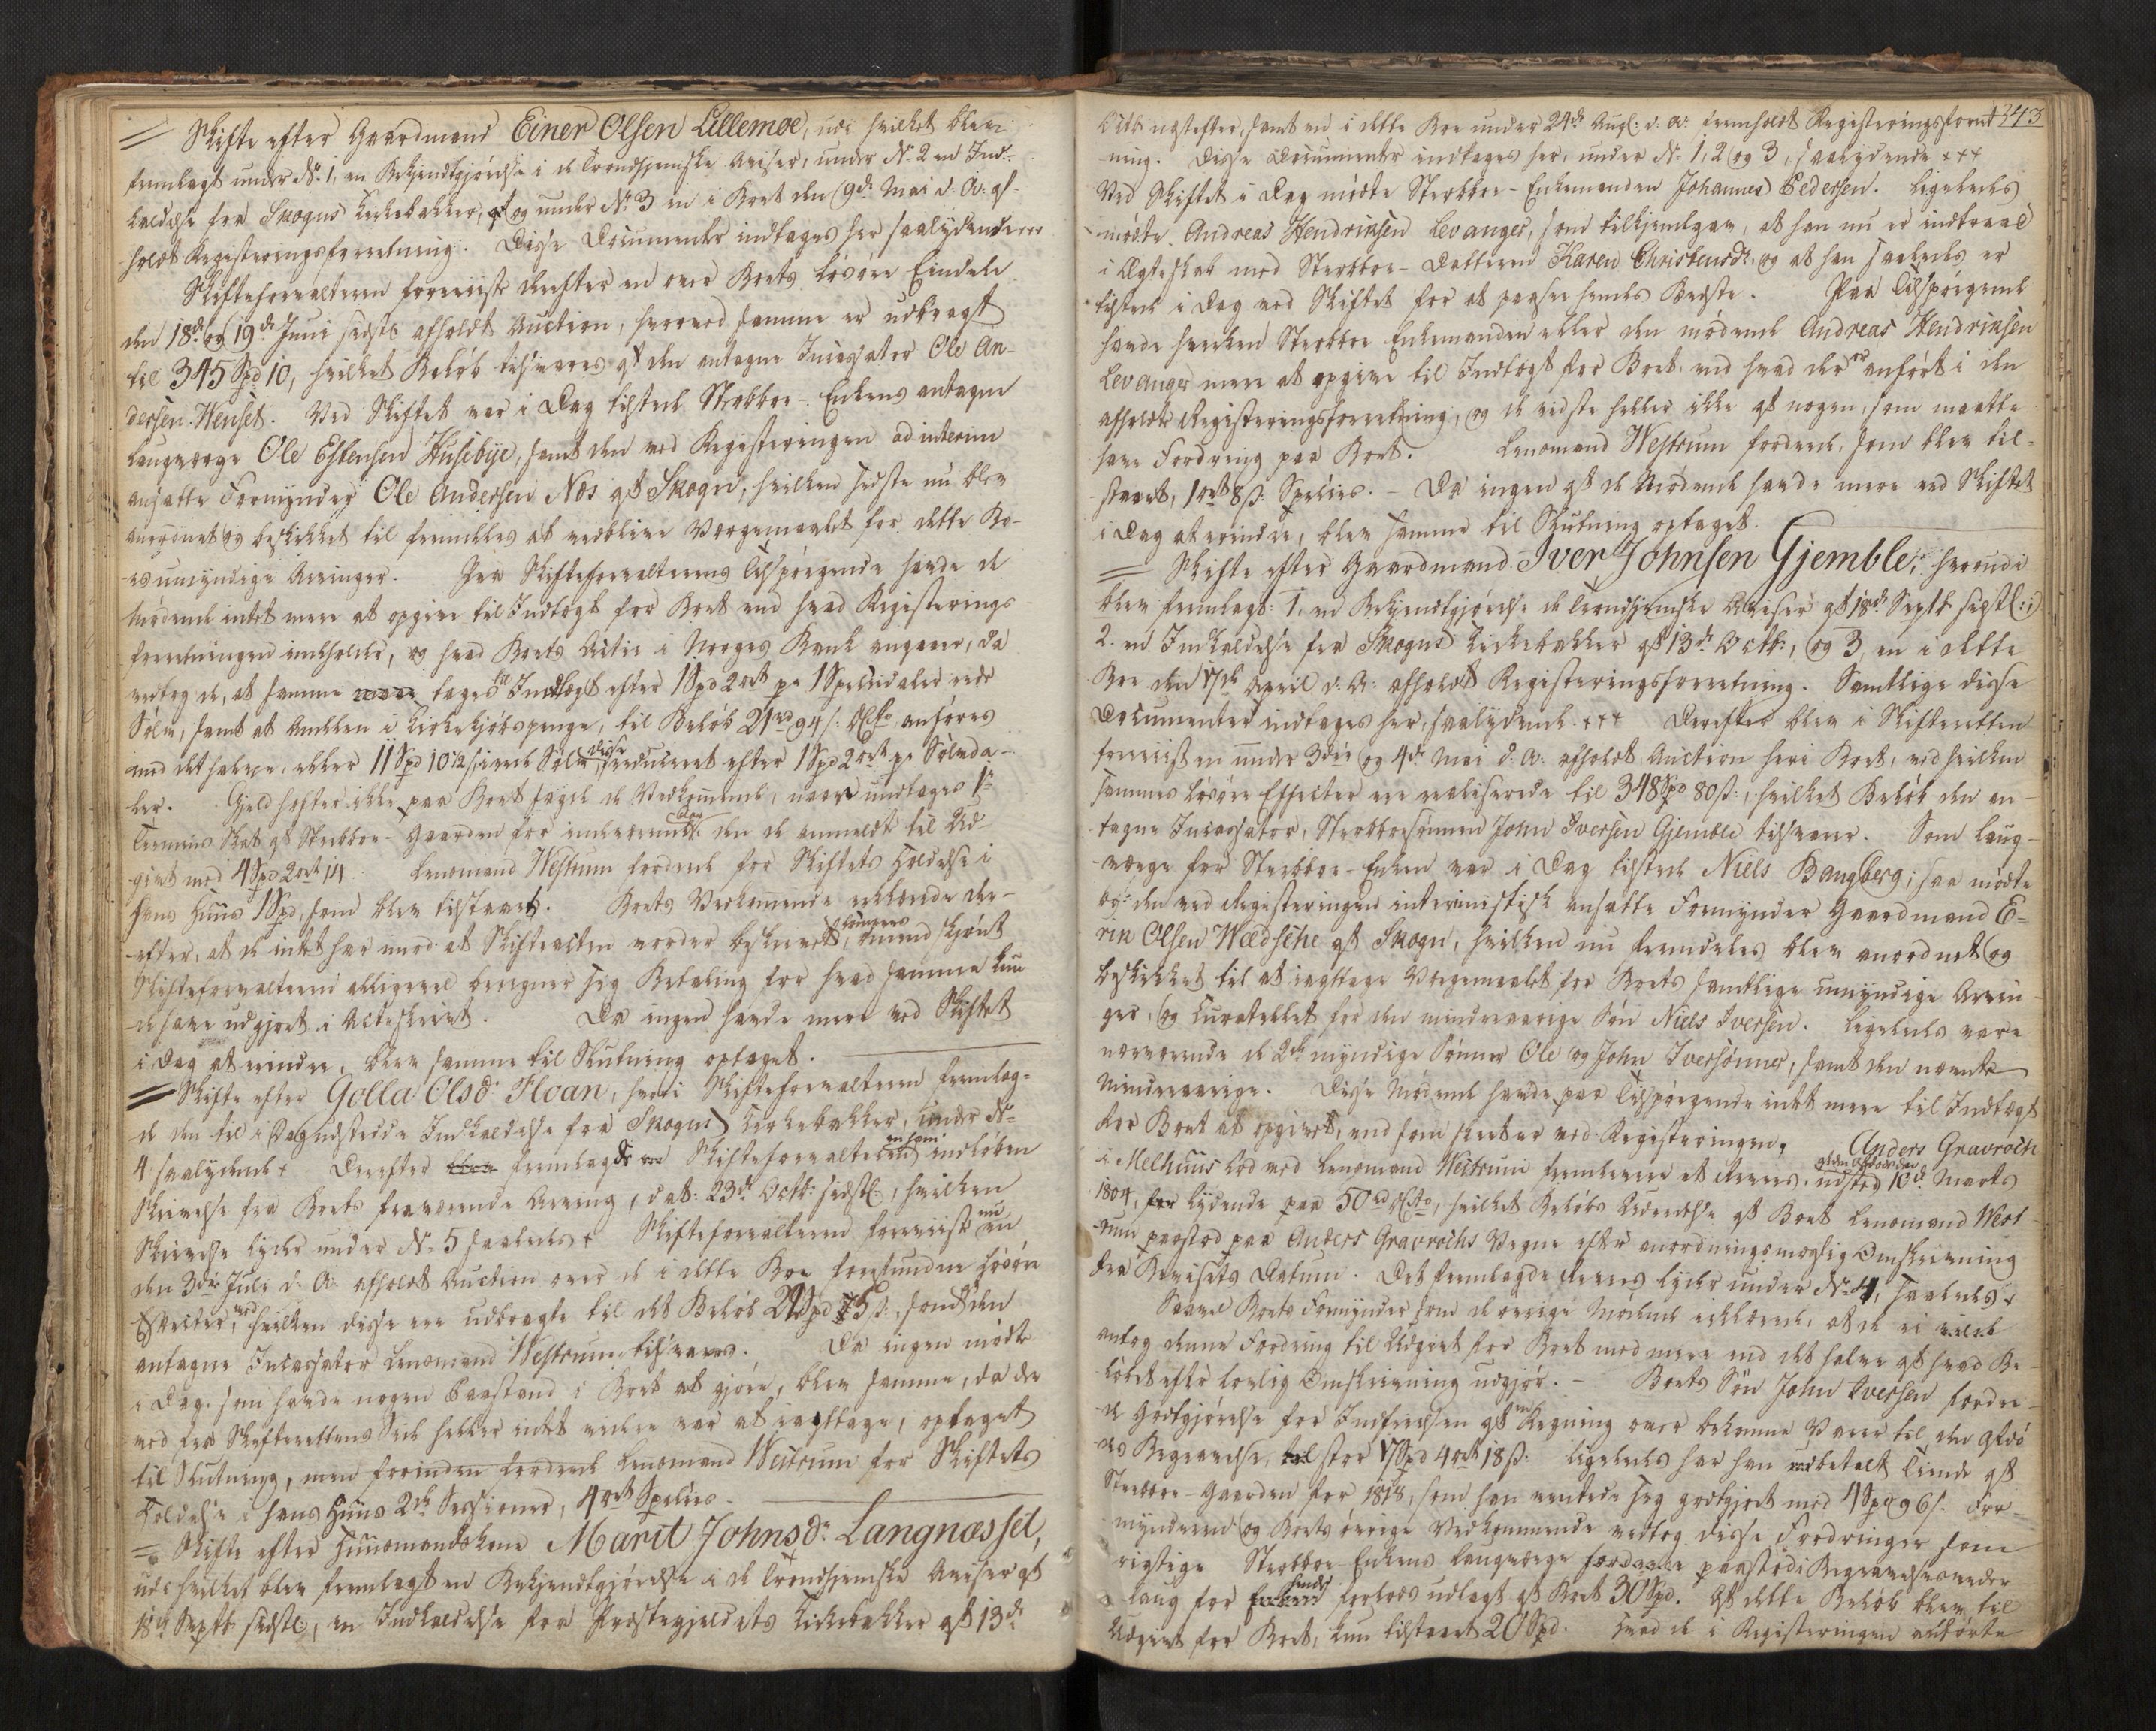 Skifte efter Gaardmand Einer Olsen Lillemoe, udi hvilket blev
fremlagt under No 1, en Bekjendtgjörelse i de Trondhjemske Aviser, under No 2 en Ind-
kaldelse fra Skogns Kirkebakke, og under No 3 en i Boet den 9de Mai d. A. af-
holdt Registeringsforretning. Disse Documenter indtages her saalydende
Skifteforvalteren foreviiste derefter en over Boets Lösöre Eiendele
den 18de og 19de Juni sidstl. afholdt Auction, hvorved samme er udbragt
til 345 Spd 10, hvilket Belöb tilsvares af den antagne Incassator Ole An-
dersen Wenset. Ved Skiftet var i Dag tilstede Sterbboe-Enkens antagne
Laugværge Ole Estensen Husebye, samt den ved Registeringen ad interim
ansatte Formynder Ole Andersen Næs af Skogn, hvilken sidste nu blev
anordnet og beskikket til fremdeles at vedblive Værgemaalet for dette Bo-
es umyndige Arvinger. Paa Skifteforvalterens Tilspörgende havde de
Mödende intet mere at opgive til Indtægt for Boet end hvad Registerings-
forretningen indeholder, og hvad Boets Actie i Norges Bank angaaer, da
vedtog de, at samme tages til Indtægt efter 1 Spd 2 ort pr 1 Speciedaler
Sölv, samt at Anden i Kirkekjöbspenge, til Belöb 21 rd 94 s. anföres
med det halve, eller 11 Spd 10½ s Sölv, disse reduceret efter 1 Spd 2 ort pr Sölvda-
ler. Gjeld hefter ikke paa Boet sagde de Vedkommende, naar undtages 1te
Termins Skat af Sterbboe-Gaarden for indeværende Aar den de anmeldte til Ud-
givt med 4 Spd 2 ort 14. Lensmand Westrum fordrede for Skiftets Holdelse i
hans Huus 1 Spd, som blev tilstaaet. Boets Vedkommende erklærede der-
efter, at de intet har imod at Skifteacten vorder beskrevet,
Skifteforvalteren alligevel beregner sig Betaling for hvad samme kun
de have udgjort i Acteskrivt. Da ingen havde mere ved Skiftet
i Dag at erindre, blev samme til Slutning optaget.
Skifte efter Golla Olsdr Floan, hvori Skifteforvalteren fremlag-
de den til i Dag udstedte Indkaldelse fra Skogns Kirkebakke, under No
4 saalydende. Derefter fremlagde Skifteforvalteren en ham indlöben
Skrivelse fra Boets fraværende Arving, dat: 23de Octbr sidstl., hvilken
Skrivelse lyder under No 5 saaledes. Skifteforvalteren foreviiste nu en
den 3die Juli d. A. afholdt Auction over de i dette Boe forefundne Lösöre
Effecter, ved hvilken disse ere udbragte til det Belöb 21 Spd 75 s., som den
antagne Incassator Lensmand Westrum tilsvarer. Da ingen mödte
i Dag, som havde nogen Paastand i Boet at gjöre, blev samme, da der
ved fra Skifterettens Side heller intet videre var at iagttage, optaget
til Slutning, men forinden fordrede Lensmand Westrum for Skiftets
Holdelse i hans Huus 2de Sessioner, 4 ort Species.
Skifte efter Huusmandskone Marit Johnsdr Langnæsset,
udi hvilket blev fremlagt en Bekjendtgjörelse i de Trondhjemske Aviser af
18de Septbr sidstl., en Indkaldelse fra Præstegjeldets Kirkebakke af 13de
343
Octb næstefter, samt en i dette Boe under 24de Augl: d. A. fremholdt Registeringsforret-
ning. Disse Documenter indtages her, under No 1, 2 og 3, saalydende +++
Ved Skiftet i Dag mödte Sterbboe-Enkemanden Johannes Pedersen. Ligeledes
mödte Andreas Hendriksen Levanger, som tilkjendegav, at han nu er indtraad
i Ægteskab med Sterbboe-Datteren Karen Christensdr. og at han saaledes er
tilstede i Dag ved Skiftet for at paasee hendes Bedste. Paa Tilspörgende
havde hverken Sterbboe Enkemanden eller den mödende Andreas Hendriksen
Levanger mere at opgive til Indtægt for Boet end hvad der er anfört i den
afholdte Registeringsforretning, og de vidste heller ikke af nogen, som maatte
have Fordring paa Boet. Lensmand Westrum fordrede, som blev til-
staaet, 1 ort 8 s. Species. - Da ingen af de Mödende havde mere ved Skiftet
i Dag at erindre, blev samme til Slutning optaget.
Skifte efter Gaardmand Iver Johnsen Gjemble, hvorudi
blev fremlagt: 1. en Bekjendtgjörelse de Trondhjemske Aviser af 18de Septbr sidstl:
2. en Indkaldelse fra Skogns Kirkebakke af 13de Octbr, og 3, en i dette
Boe den 17de April d. A. afholdt Registeringsforretning. Samtlige disse
Documenter indtages her, saalydende +++ Derefter blev i Skifteretten
foreviist en under 3die og 4de Mai d. A. afholdt Auction her i Boet, ved hvilken
sammes Lösöre Effecter ere realiserede til 348 Spd 80 s., hvilket Belöb den an-
tagne Incassator, Sterbboesönnen John Iversen Gjemble tilsvarer. Som Laug-
værge for Sterbboe-Enken var i Dag tilstede Niels Bangberg; saa mödte
og: den ved Registeringen interimistisk ansatte Formynder Gaardmand E-
rik Olsen Wædsehe af Skogn, hvilken nu fremdeles blev anordnet og
beskikket til at iagttage Værgemaalet for Boets samtlige umyndige Arvin-
ger, og Curatellet for den mindreaarige Sön Niels Iversen. Ligeledes vare
nærværende de 2de myndige Sönner Ole og John Iversönner, samt den nævnte
Mindreaarige. Disse Mödende havde paa Tilspörgende intet mere til Indtægt
for Boet at opgivet, end som skeet er ved Registeringen. Anders Gravroch
i Melhuus lod ved Lensmand Westrum fremlevere et Beviis, udsted 10de Marts
1804, lydende paa 50 rd, hvilket Belöbs Udredelse af Boet Lensmand West-
rum paastod paa Anders Gravrochs Vegne efter anordningsmæssig Omskrivning
fra Bevisets Datum. Det fremlagde Beviis lyder under No 4, saaledes
Saavel Boets Formynder som de övrige Mödende erklærede, at de ei vilde
antog denne Fordring til Udgivt for Boet med mere end det halve af hvad Be-
löbet efter lovlig Omskrivning udgjör. - Boets Sön John Iversen fordre-
de Godtgjörelse for Indfrielsen af en Regning over bekomne Varer til den Afdö-
des Begravelse, stor 17 Spd 4 ort 18 s. Ligeledes har han udbetalt Tiende af
Sterbboe-Gaarden for 1818, som han ventede sig godtgjort med 4 Spd 96 s. For-
mynderen og Boets övrige Vedkommende vedtog disse Fordringer som
rigtige Sterbboe-Enkens Laugværge paastod Begravelses
laug for hende forlods udlagt af Boet 30 Spd. Af dette Belöb blev til
Udgivt for Boet, kun tilstaaet 20 Spd. Hvad de i Registeringen anförte